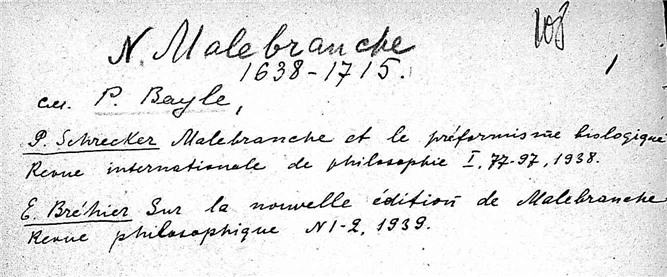 108
N. Malebranche
1638-1715.
см. P. Bayle,
P. Schrecker Malebranche et le préformisme biologique
Revue internationale de philosophie I, 77-97, 1938.
E. Bréhier Sur la nouvelle édition de Malebranche
Revue philosophique N1-2, 1939.